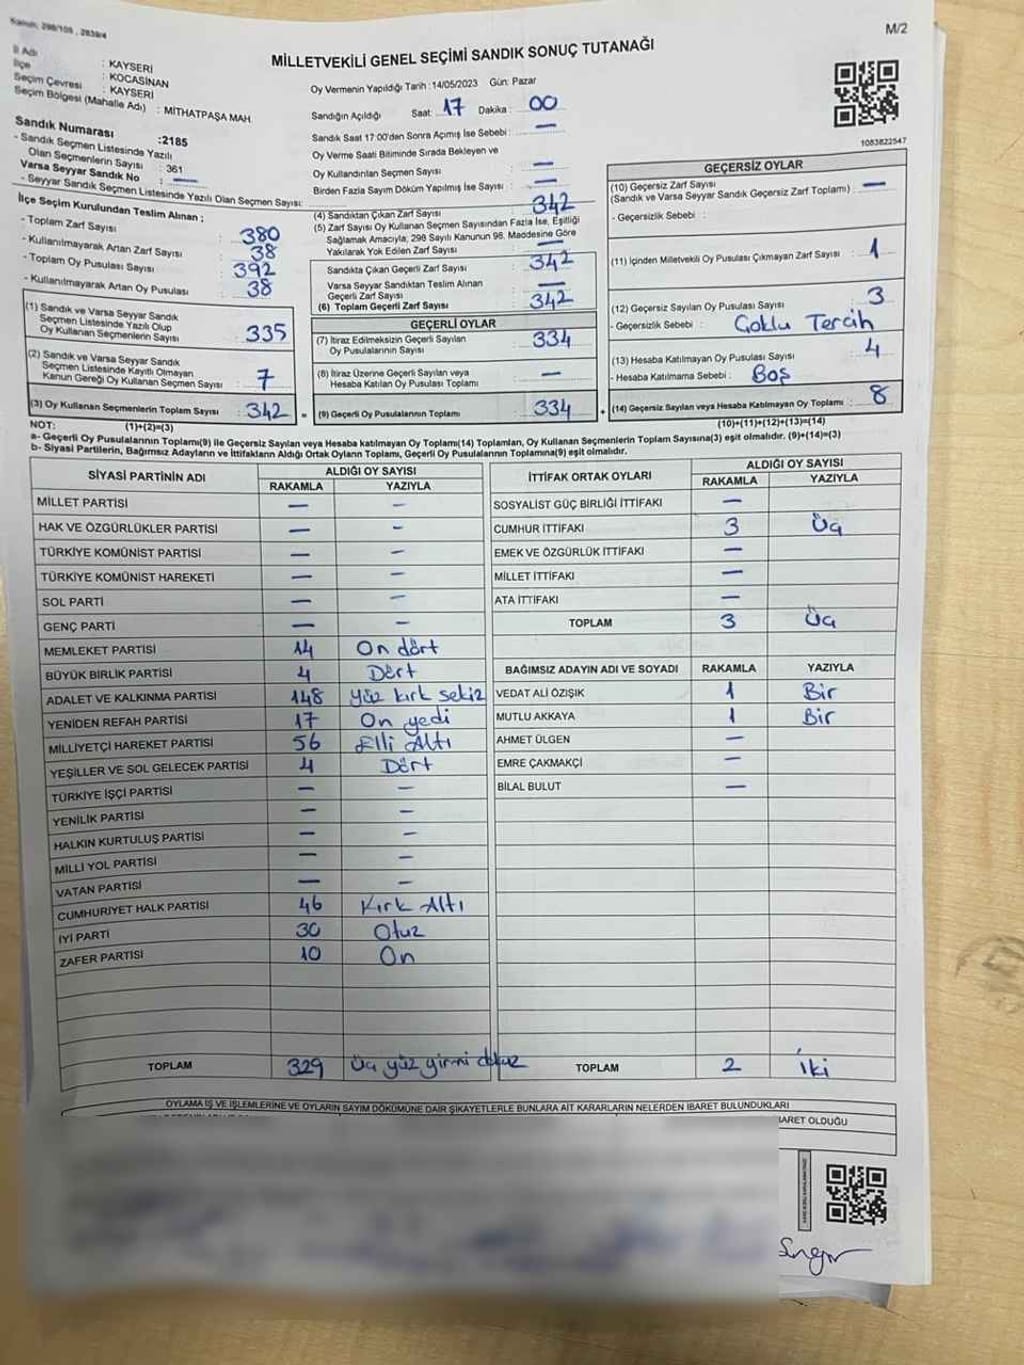 Kanun; 298/105 , 2839/4
M/2
MİLLETVEKİLİ GENEL SEÇİMİ SANDIK SONUÇ TUTANAĞI
İl Adı : KAYSERİ
İlçe : KOCASİNAN
Seçim Çevresi : KAYSERİ
Seçim Bölgesi (Mahalle Adı) : MİTHATPAŞA MAH.
Sandık Numarası :2185
- Sandık Seçmen Listesinde Yazılı
Olan Seçmenlerin Sayısı : 361
Varsa Seyyar Sandık No : —
- Seyyar Sandık Seçmen Listesinde Yazılı Olan Seçmen Sayısı:
İlçe Seçim Kurulundan Teslim Alınan ;
- Toplam Zarf Sayısı : 380
- Kullanılmayarak Artan Zarf Sayısı : 38
- Toplam Oy Pusulası Sayısı : 392
- Kullanılmayarak Artan Oy Pusulası : 38
(1) Sandık ve Varsa Seyyar Sandık
Seçmen Listesinde Yazılı Olup
Oy Kullanan Seçmenlerin Sayısı : 335
(2) Sandık ve Varsa Seyyar Sandık
Seçmen Listesinde Kayıtlı Olmayan
Kanun Gereği Oy Kullanan Seçmen Sayısı : 7
(3) Oy Kullanan Seçmenlerin Toplam Sayısı : 342
(1)+(2)=(3)
Oy Vermenin Yapıldığı Tarih :14/05/2023 Gün: Pazar
Sandığın Açıldığı Saat: 17 Dakika : 00
Sandık Saat 17:00'den Sonra Açımış İse Sebebi : —
Oy Verme Saati Bitiminde Sırada Bekleyen ve
Oy Kullandırılan Seçmen Sayısı : —
Birden Fazla Sayım Döküm Yapılmış İse Sayısı : —
(4) Sandıktan Çıkan Zarf Sayısı : 342
(5) Zarf Sayısı Oy Kullanan Seçmen Sayısından Fazla İse, Eşitliği
Sağlamak Amacıyla, 298 Sayılı Kanunun 98. Maddesine Göre
Yakılarak Yok Edilen Zarf Sayısı : —
Sandıkta Çıkan Geçerli Zarf Sayısı : 342
Varsa Seyyar Sandıktan Teslim Alınan
Geçerli Zarf Sayısı : —
(6) Toplam Geçerli Zarf Sayısı : 342
GEÇERLİ OYLAR
(7) İtiraz Edilmeksizin Geçerli Sayılan
Oy Pusulalarının Sayısı : 334
(8) İtiraz Üzerine Geçerli Sayılan veya
Hesaba Katılan Oy Pusulası Toplamı : —
= (9) Geçerli Oy Pusulalarının Toplamı : 334
1083822547
GEÇERSİZ OYLAR
(10) Geçersiz Zarf Sayısı
(Sandık ve Varsa Seyyar Sandık Geçersiz Zarf Toplamı) : —
- Geçersizlik Sebebi :
(11) İçinden Milletvekili Oy Pusulası Çıkmayan Zarf Sayısı : 1
(12) Geçersiz Sayılan Oy Pusulası Sayısı : 3
- Geçersizlik Sebebi : Çoklu Tercih
(13) Hesaba Katılmayan Oy Pusulası Sayısı : 4
- Hesaba Katılmama Sebebi : Boş
+ (14) Geçersiz Sayılan veya Hesaba Katılmayan Oy Toplamı : 8
(10)+(11)+(12)+(13)=(14)
NOT:
a- Geçerli Oy Pusulalarının Toplamı(9) ile Geçersiz Sayılan veya Hesaba katılmayan Oy Toplamı(14) Toplamları, Oy Kullanan Seçmenlerin Toplam Sayısına(3) eşit olmalıdır. (9)+(14)=(3)
b- Siyasi Partilerin, Bağımsız Adayların ve İttifakların Aldığı Ortak Oyların Toplamı, Geçerli Oy Pusulalarının Toplamına(9) eşit olmalıdır.
SİYASİ PARTİNİN ADI ALDIĞI OY SAYISI
RAKAMLA YAZIYLA
MİLLET PARTİSİ — —
HAK VE ÖZGÜRLÜKLER PARTİSİ — —
TÜRKİYE KOMÜNİST PARTİSİ — —
TÜRKİYE KOMÜNİST HAREKETİ — —
SOL PARTİ — —
GENÇ PARTİ — —
MEMLEKET PARTİSİ 14 On dört
BÜYÜK BİRLİK PARTİSİ 4 Dört
ADALET VE KALKINMA PARTİSİ 148 Yüz kırk sekiz
YENİDEN REFAH PARTİSİ 17 On yedi
MİLLİYETÇİ HAREKET PARTİSİ 56 Elli Altı
YEŞİLLER VE SOL GELECEK PARTİSİ 4 Dört
TÜRKİYE İŞÇİ PARTİSİ — —
YENİLİK PARTİSİ — —
HALKIN KURTULUŞ PARTİSİ — —
MİLLİ YOL PARTİSİ — —
VATAN PARTİSİ — —
CUMHURİYET HALK PARTİSİ 46 Kırk Altı
İYİ PARTİ 30 Otuz
ZAFER PARTİSİ 10 On
TOPLAM 329 Üç yüz yirmi dokuz
İTTİFAK ORTAK OYLARI ALDIĞI OY SAYISI
RAKAMLA YAZIYLA
SOSYALİST GÜÇ BİRLİĞİ İTTİFAKI —
CUMHUR İTTİFAKI 3 Üç
EMEK VE ÖZGÜRLÜK İTTİFAKI —
MİLLET İTTİFAKI —
ATA İTTİFAKI —
TOPLAM 3 Üç
BAĞIMSIZ ADAYIN ADI VE SOYADI RAKAMLA YAZIYLA
VEDAT ALİ ÖZIŞIK 1 Bir
MUTLU AKKAYA 1 Bir
AHMET ÜLGEN —
EMRE ÇAKMAKÇİ —
BİLAL BULUT —
TOPLAM 2 İki
OYLAMA İŞ VE İŞLEMLERİNE VE OYLARIN SAYIM DÖKÜMÜNE DAİR ŞİKAYETLERLE BUNLARA AİT KARARLARIN NELERDEN İBARET BULUNDUKLARI
BARET OLDUĞU